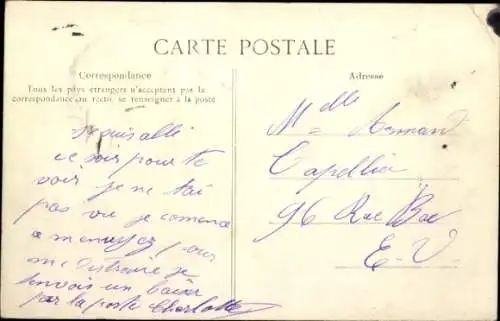 CARTE POSTALE
Correspondance
Tous les pays étrangers n'acceptent pas la
correspondance au recto, se renseigner à la poste
Adresse
ce soir pour te
voir je ne t'ai
pas vu je comence
a pour
me distraire je
envois un baiser
par la poste Charlotte
Melle Armand
Capellier
96 Rue Bac
E. V.